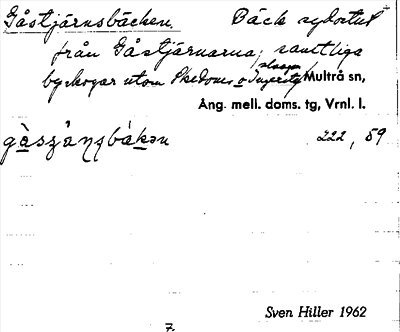 Gåstjärnsbäcken. Bäck sydost ut
från Gåstjärnarna; samtliga
byskogar utom Skedoms o Ingeritg
skogar
Multrå sn,
Ång. mell. doms. tg, Vrnl. l.
222, 59
Sven Hiller 1962
7.